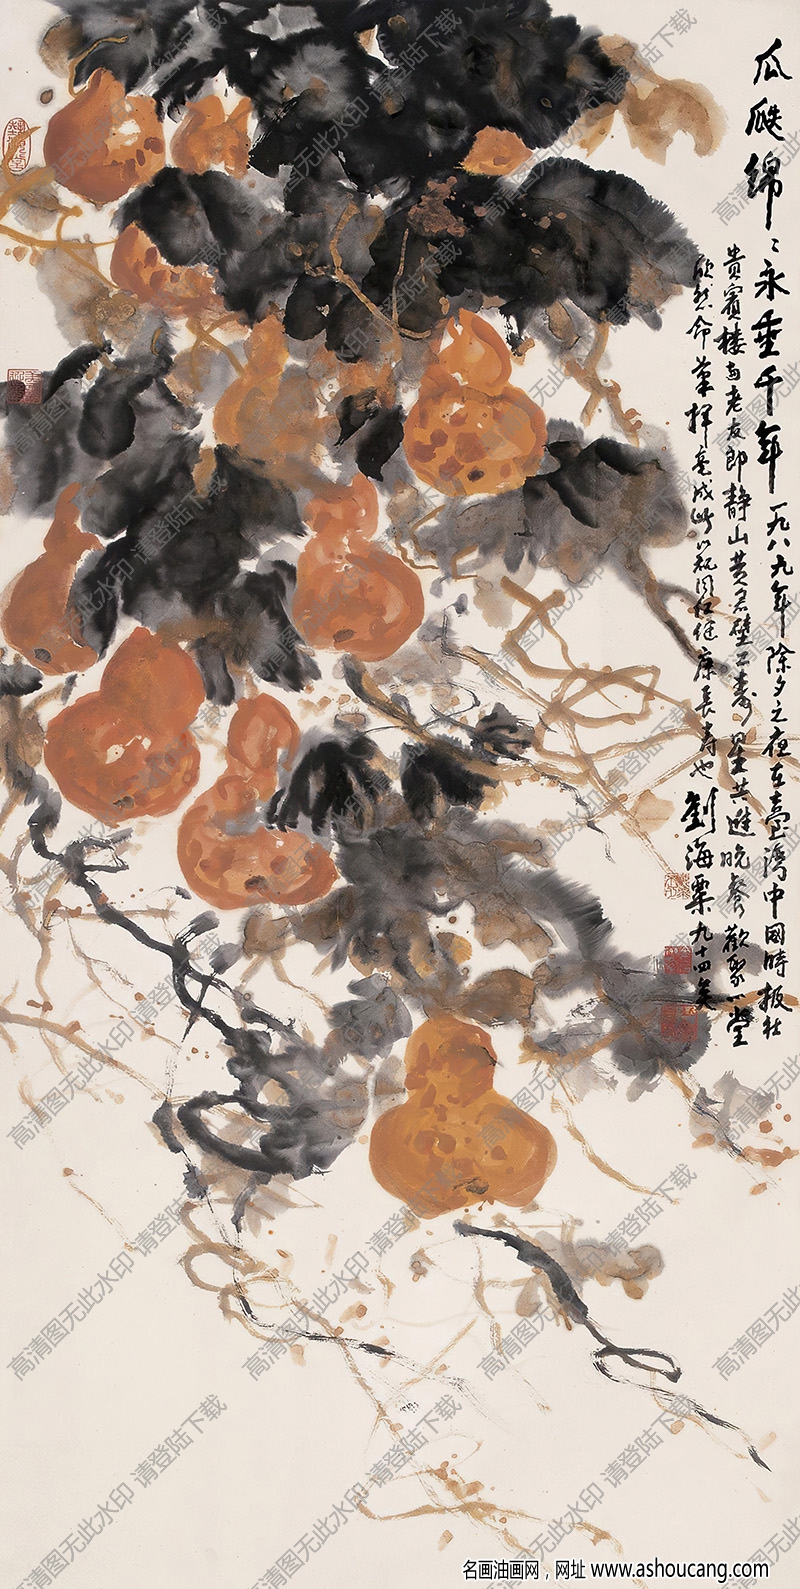 瓜瓞绵〻永垂千年 一九八九年除夕之夜在臺灣中國時报社
贵賓楼与老友郎静山黄君璧二寿星共進晚餐歡聚一堂
欣然命筆揮毫成此以祝同仁健康長寿也 劉海粟九十四矣
高清图无此水印 请登陆下载
名画油画网，网址 www.ashoucang.com